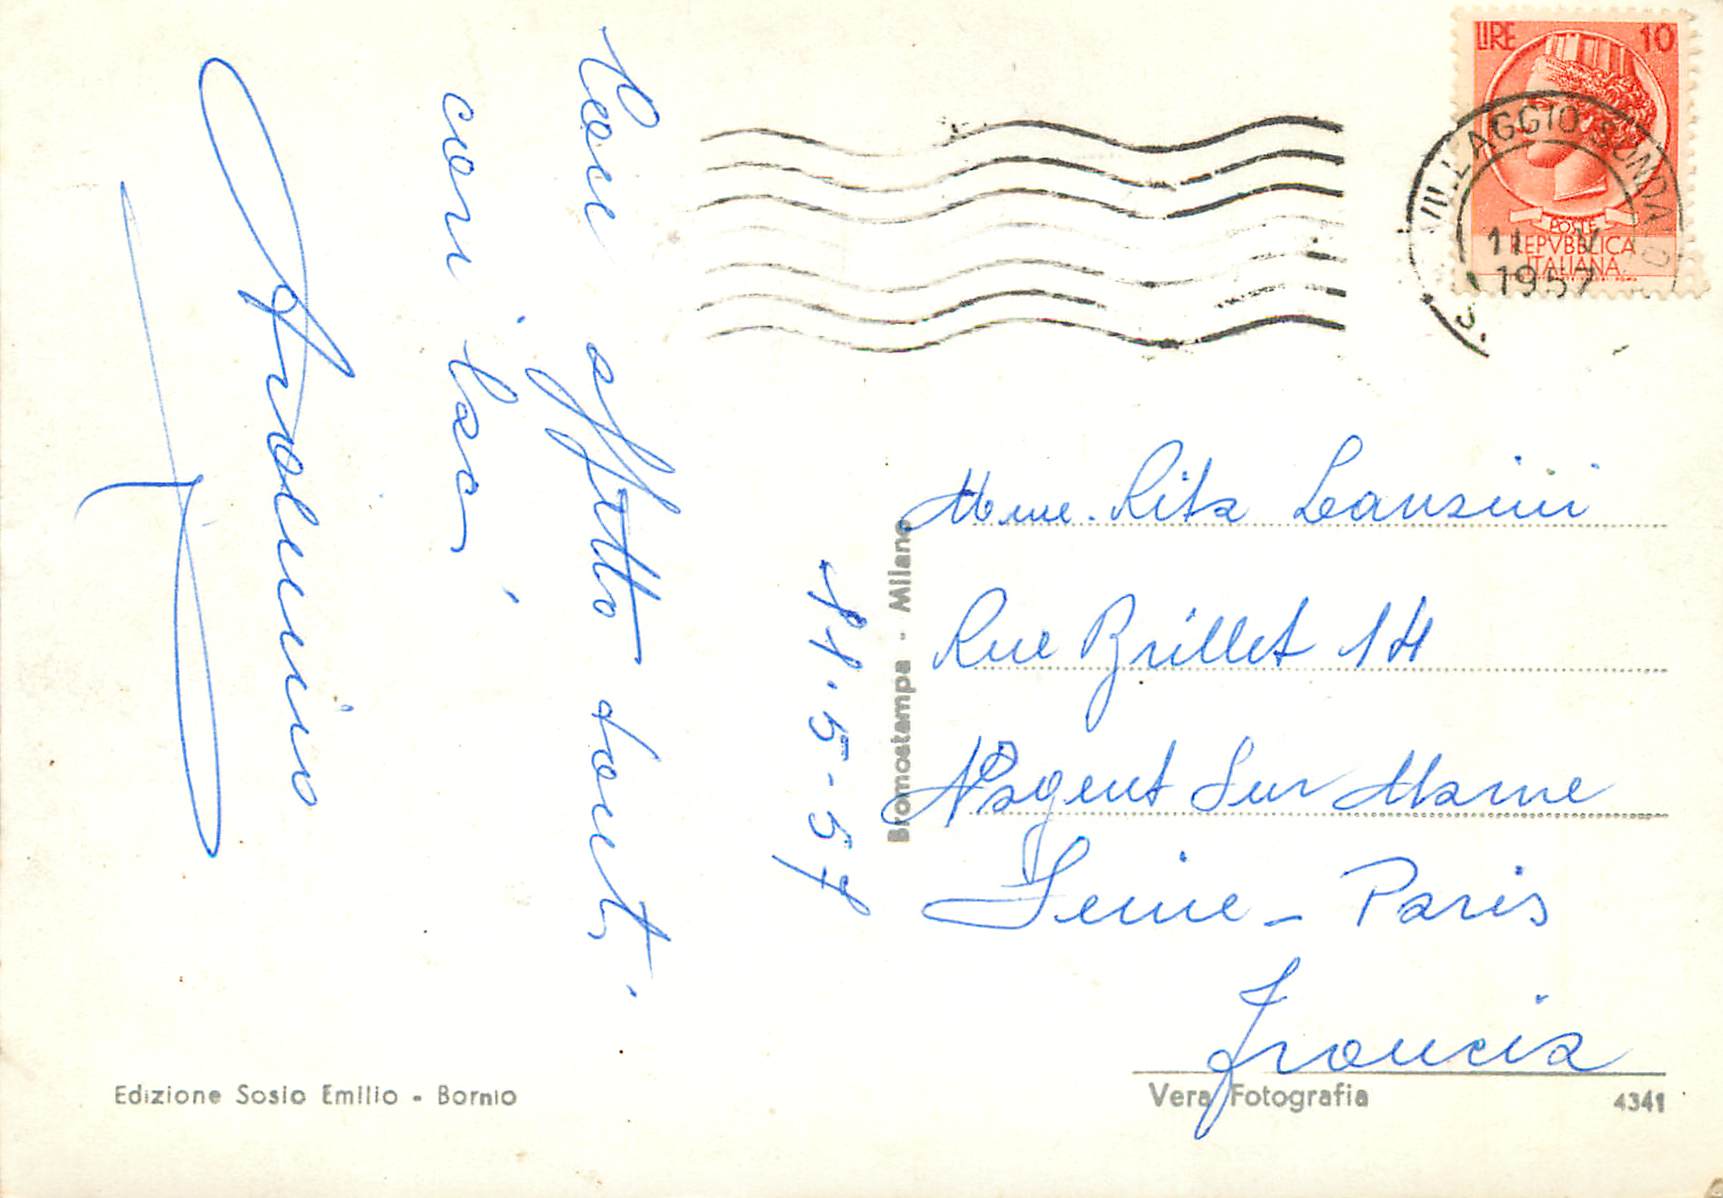 LIRE 10
POSTE
REPVBBLICA
ITALIANA
VILLAGGIO SONDALO
11 V
1957
affetto
11·5·57
Bromostampa - Milano
Mme. Rita Lanzini
Rue Brillet 14
Nogent Sur Marne
Seine - Paris
Francia
Edizione Sosio Emilio - Bormio
Vera Fotografia
4341